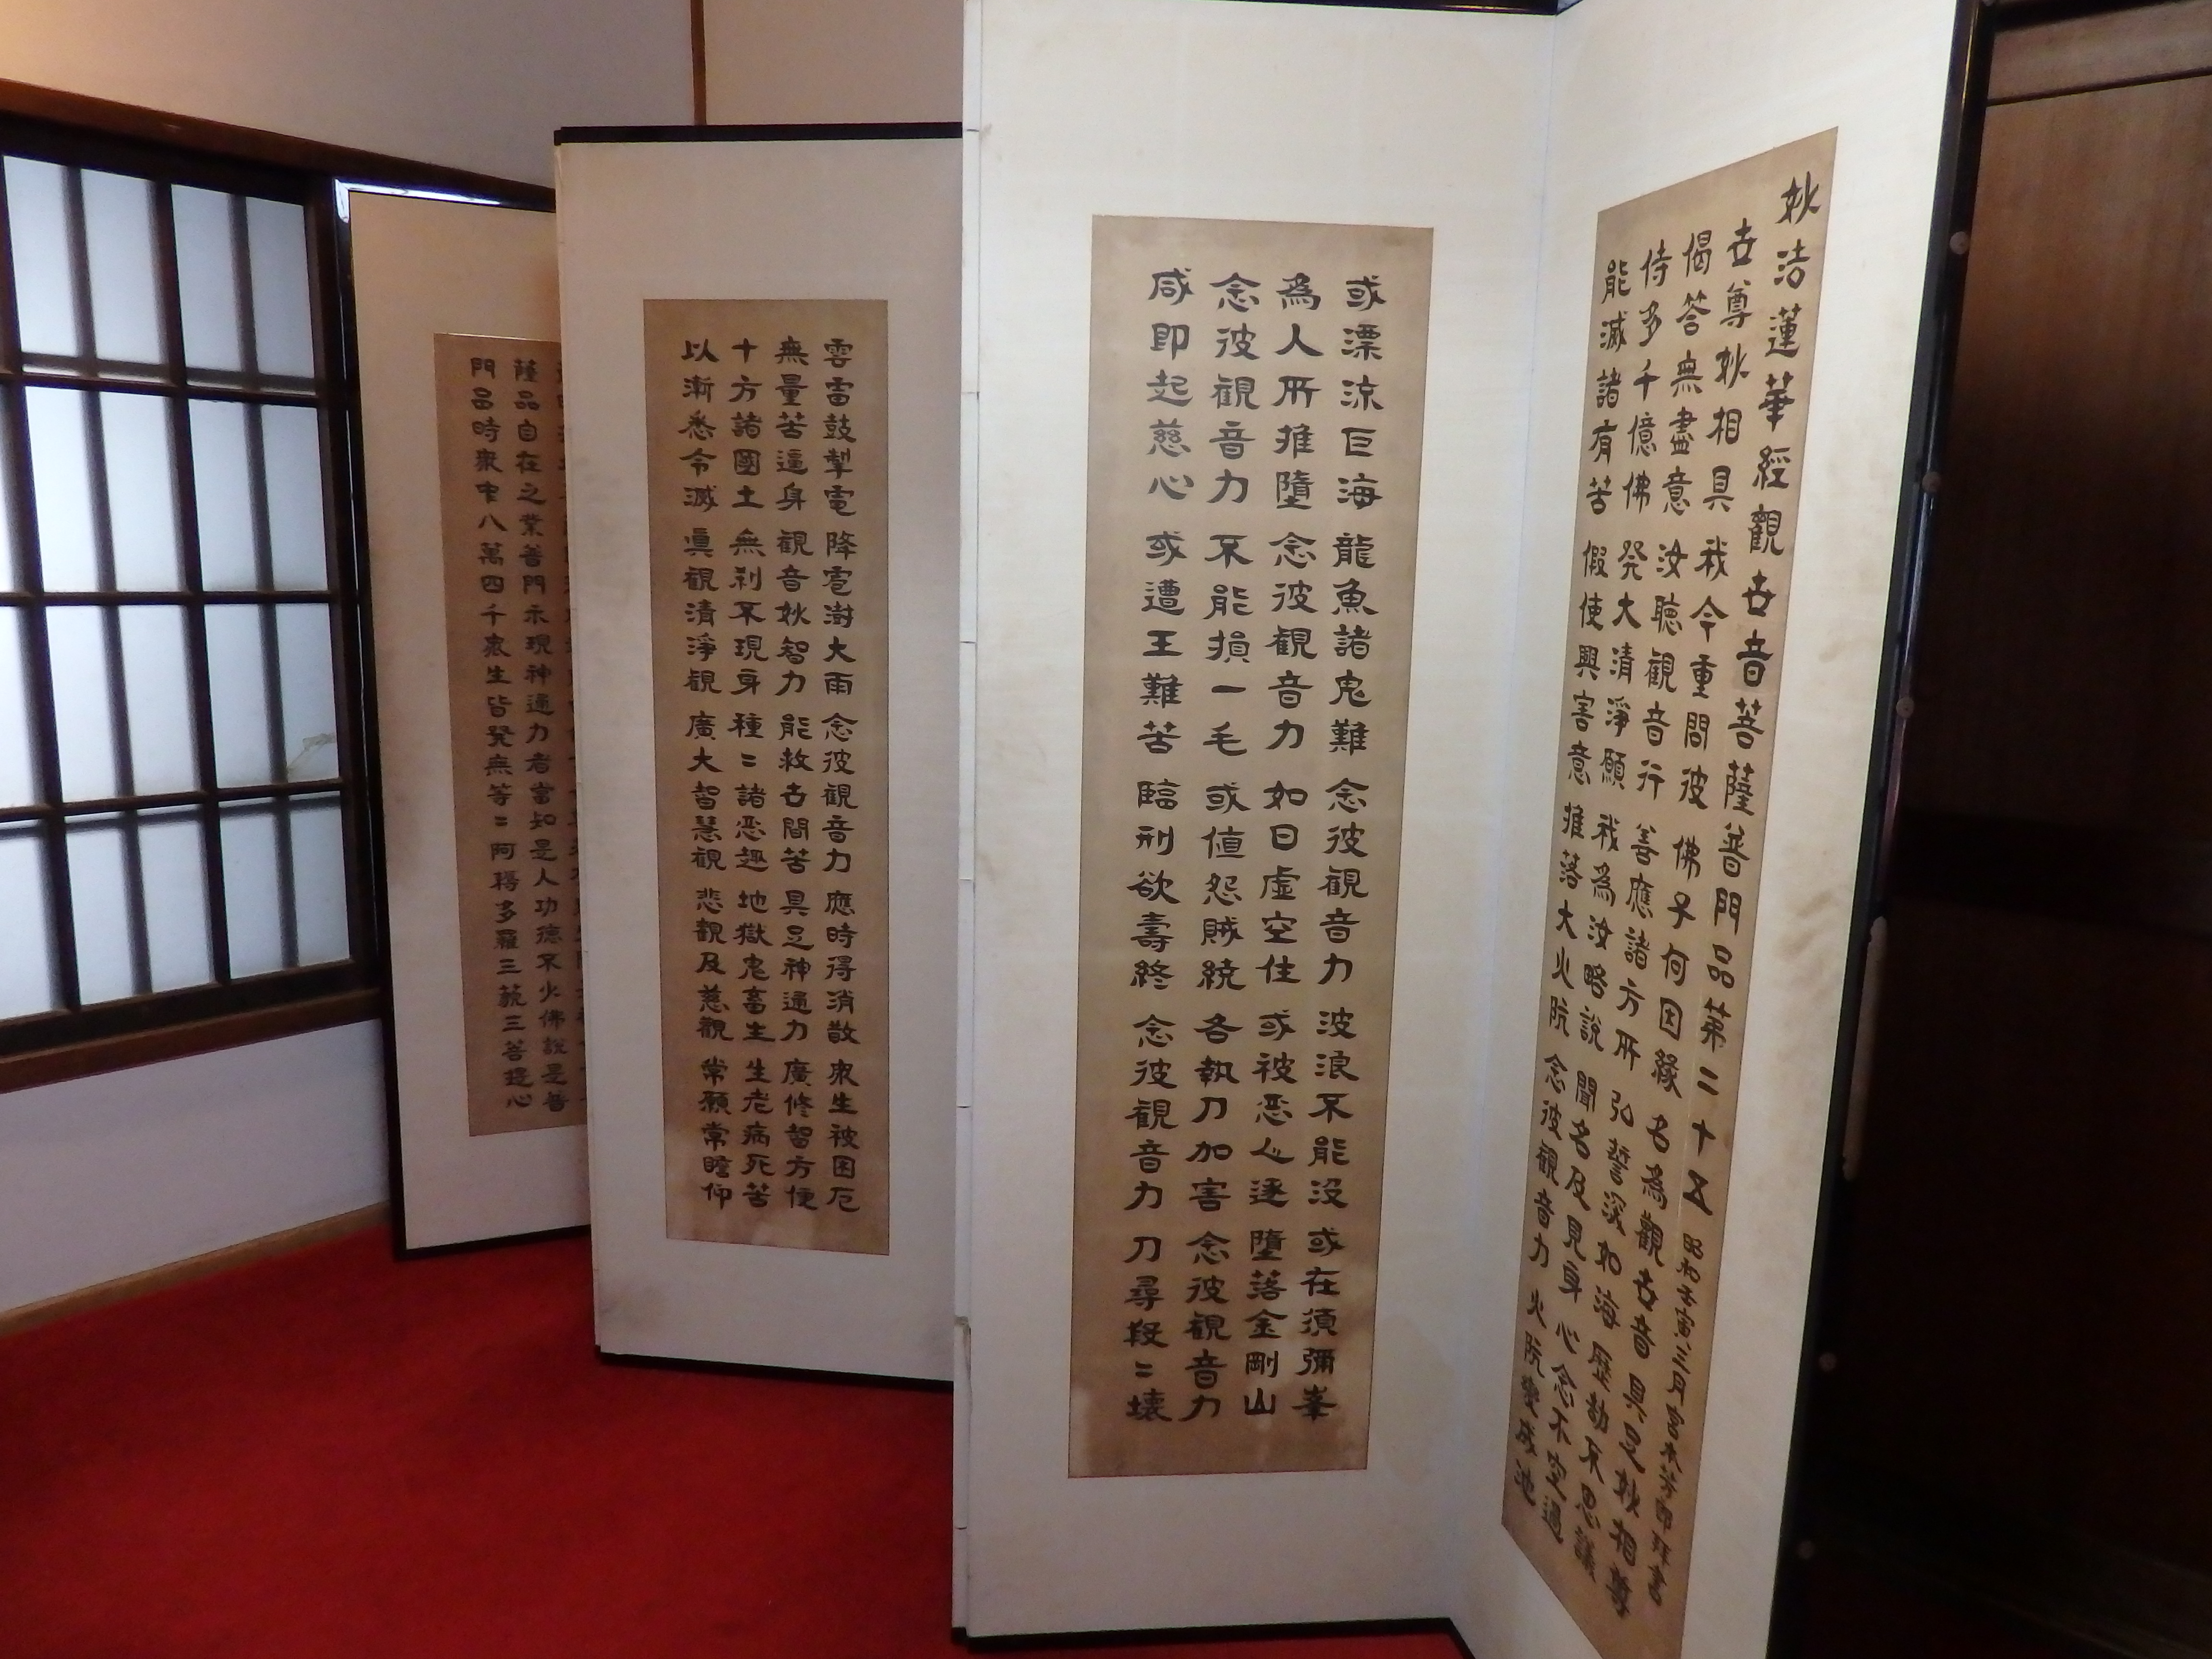 妙法蓮華經觀世音菩薩普門品第二十五 昭和壬寅三月宮本芳郎拜書
世尊妙相具 我今重問彼 佛子何因緣 名為觀世音 具足妙相尊
偈答無盡意 汝聽觀音行 善應諸方所 弘誓深如海 歷劫不思議
侍多千億佛 発大清淨願 我為汝略說 聞名及見身 心念不空過
能滅諸有苦 假使興害意 推落大火阬 念彼觀音力 火阬變成池
或漂流巨海 龍魚諸鬼難 念彼觀音力 波浪不能没 或在須彌峯
為人所推墮 念彼觀音力 如日虛空住 或被悪人逐 墮落金剛山
念彼觀音力 不能損一毛 或值怨賊繞 各執刀加害 念彼觀音力
咸即起慈心 或遭王難苦 臨刑欲壽終 念彼觀音力 刀尋段〻壞
雲雷鼓掣電 降雹澍大雨 念彼觀音力 應時得消散 衆生被困厄
無量苦逼身 觀音妙智力 能救世間苦 具足神通力 廣修智方便
十方諸國土 無刹不現身 種〻諸悪趣 地獄鬼畜生 生老病死苦
以漸悉令滅 眞觀清淨觀 廣大智慧觀 悲觀及慈觀 常願常瞻仰
薩品自在之業普門示現神通力者當知是人功德不少佛說是普
門品時衆中八萬四千衆生皆発無等〻阿耨多羅三藐三菩提心